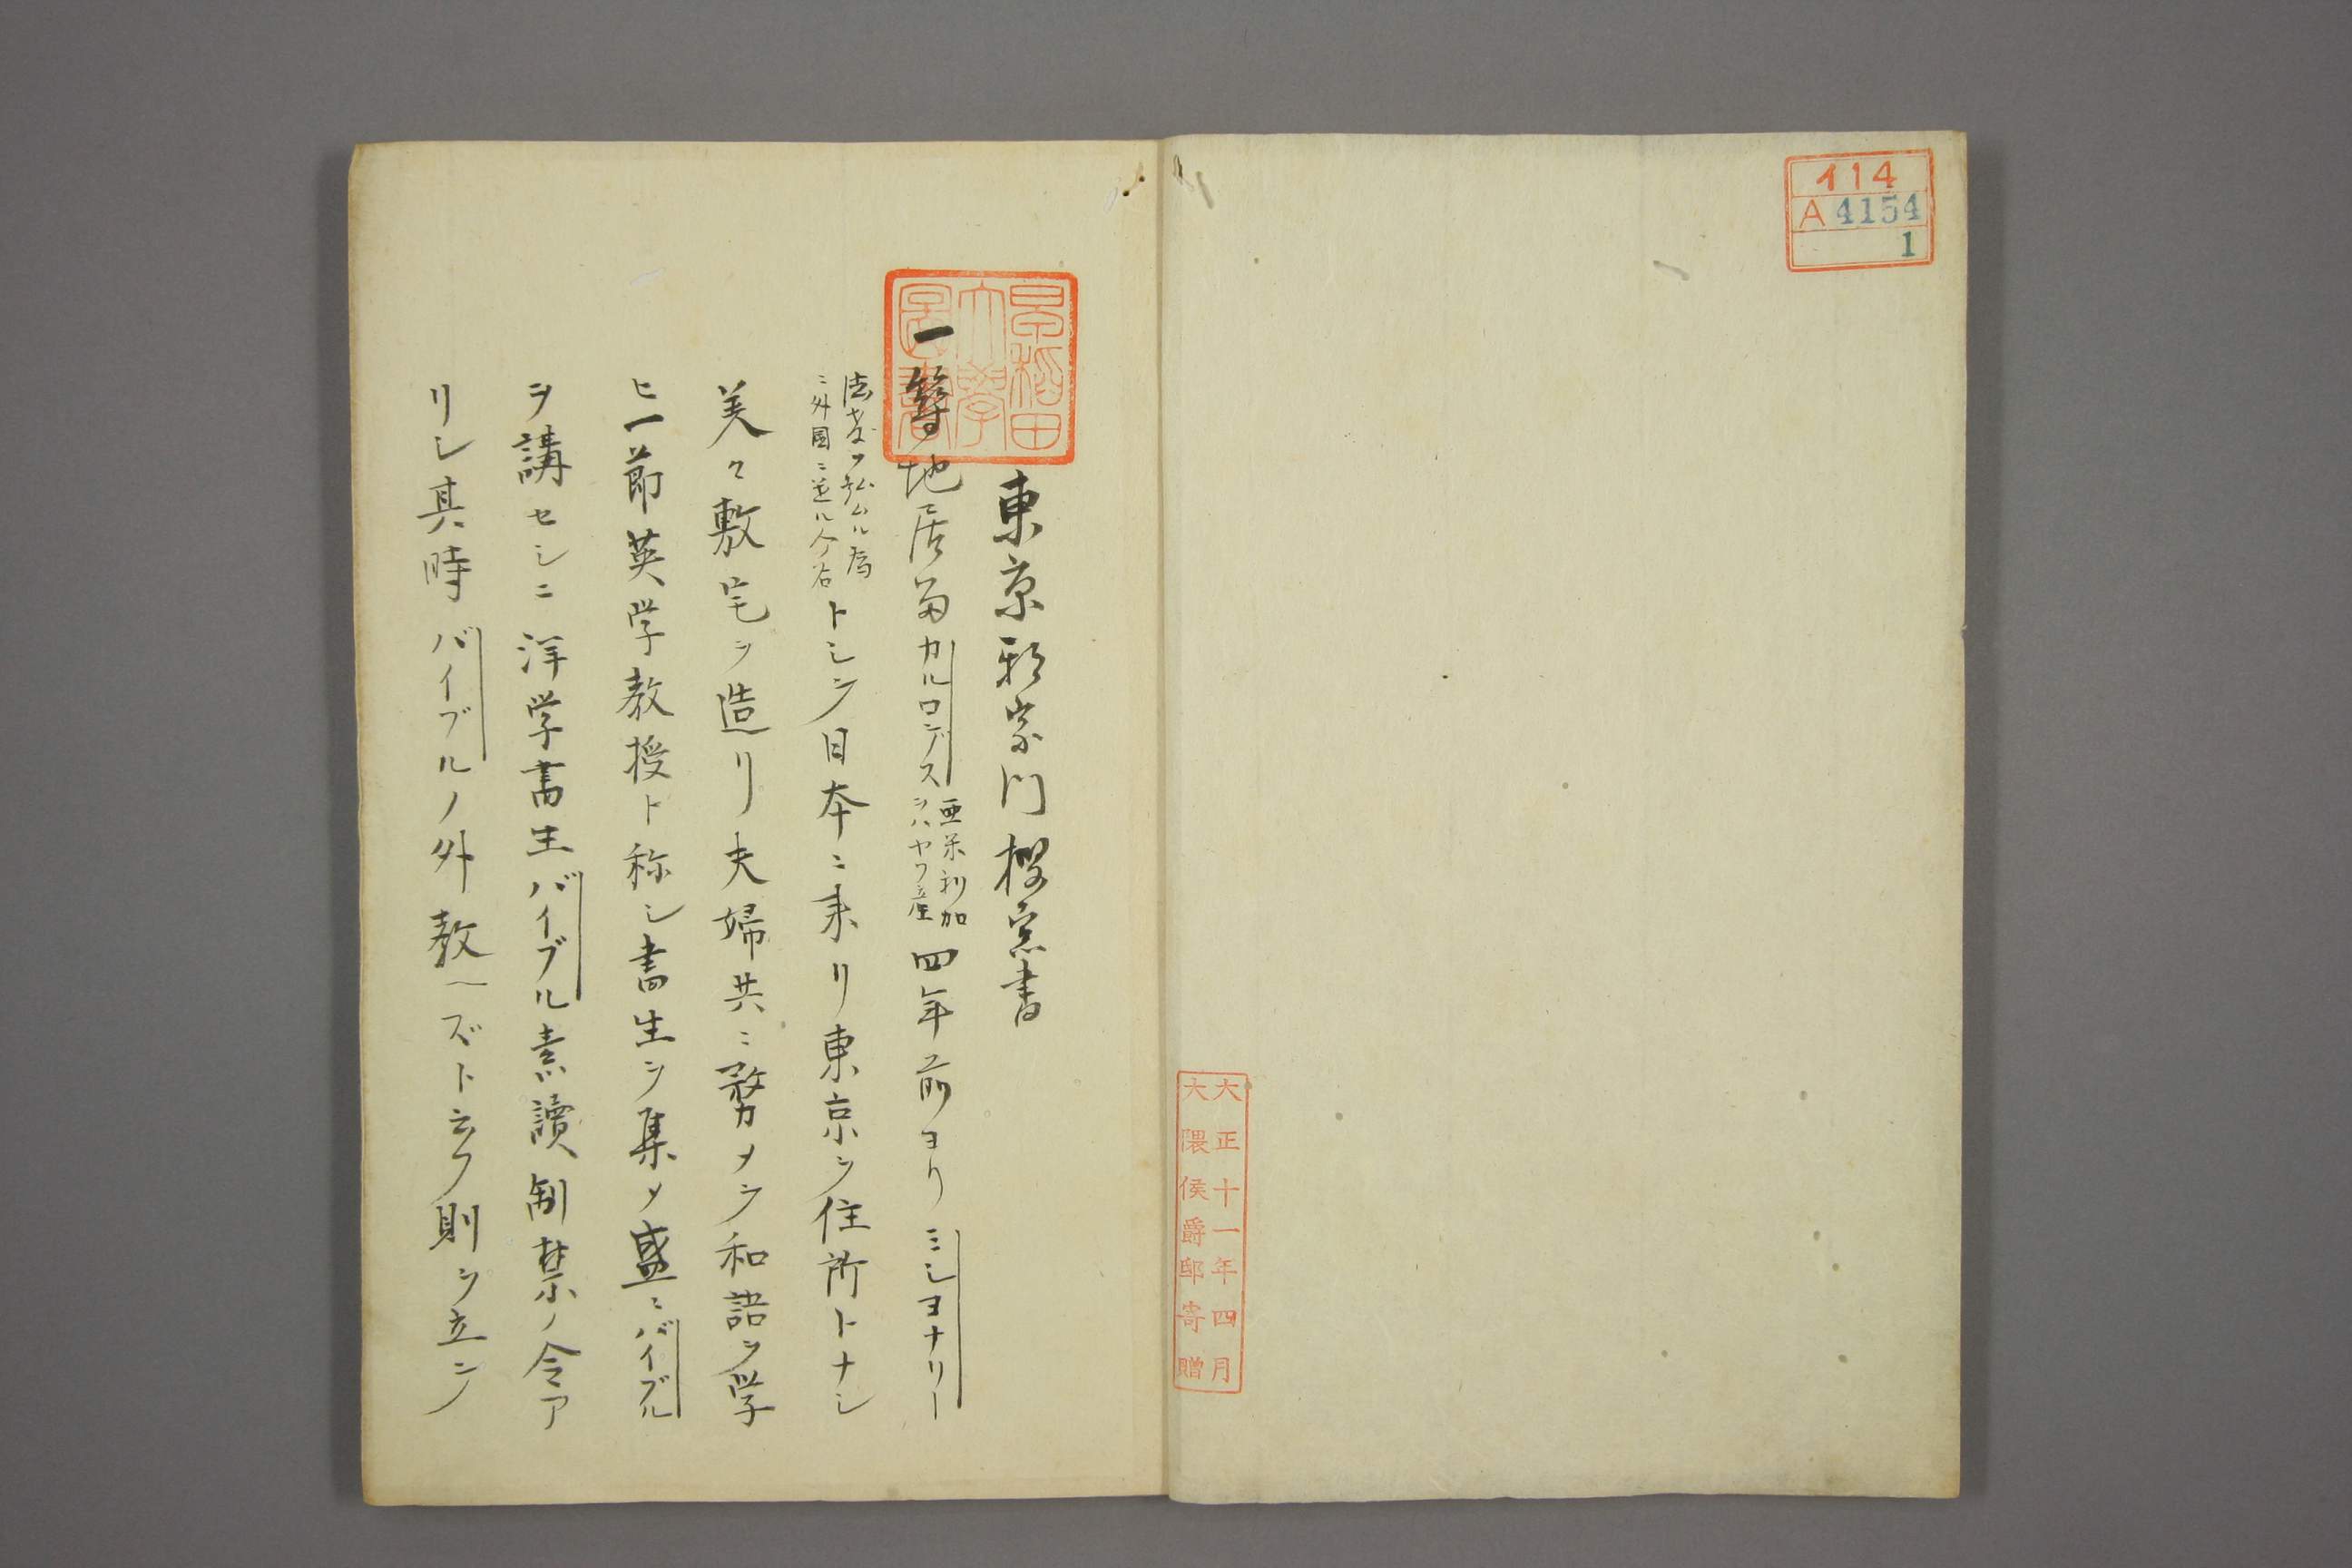 イ14
A 4154
1
大正十一年四月
大隈侯爵邸寄贈
早稲田
大學
圖書
東京邪宗門探索書
一 築地居留カルロンデス 亜米利加 四年前ヨリミシヨナリー
法教ヲ弘ムル為
ニ外国ニ送ル人ノ名
トシテ日本ニ来リ東京ヲ住所トナシ
美々敷宅ヲ造リ夫婦共ニ務カメテ和語ヲ学
ヒ一節英学教授ト称シ書生ヲ集メ盛ニバイブル
ヲ講セシニ洋学書生バイブル素讀制禁ノ令ア
リシ其時バイブルノ外教ヘズト云フ則ヲ立テ